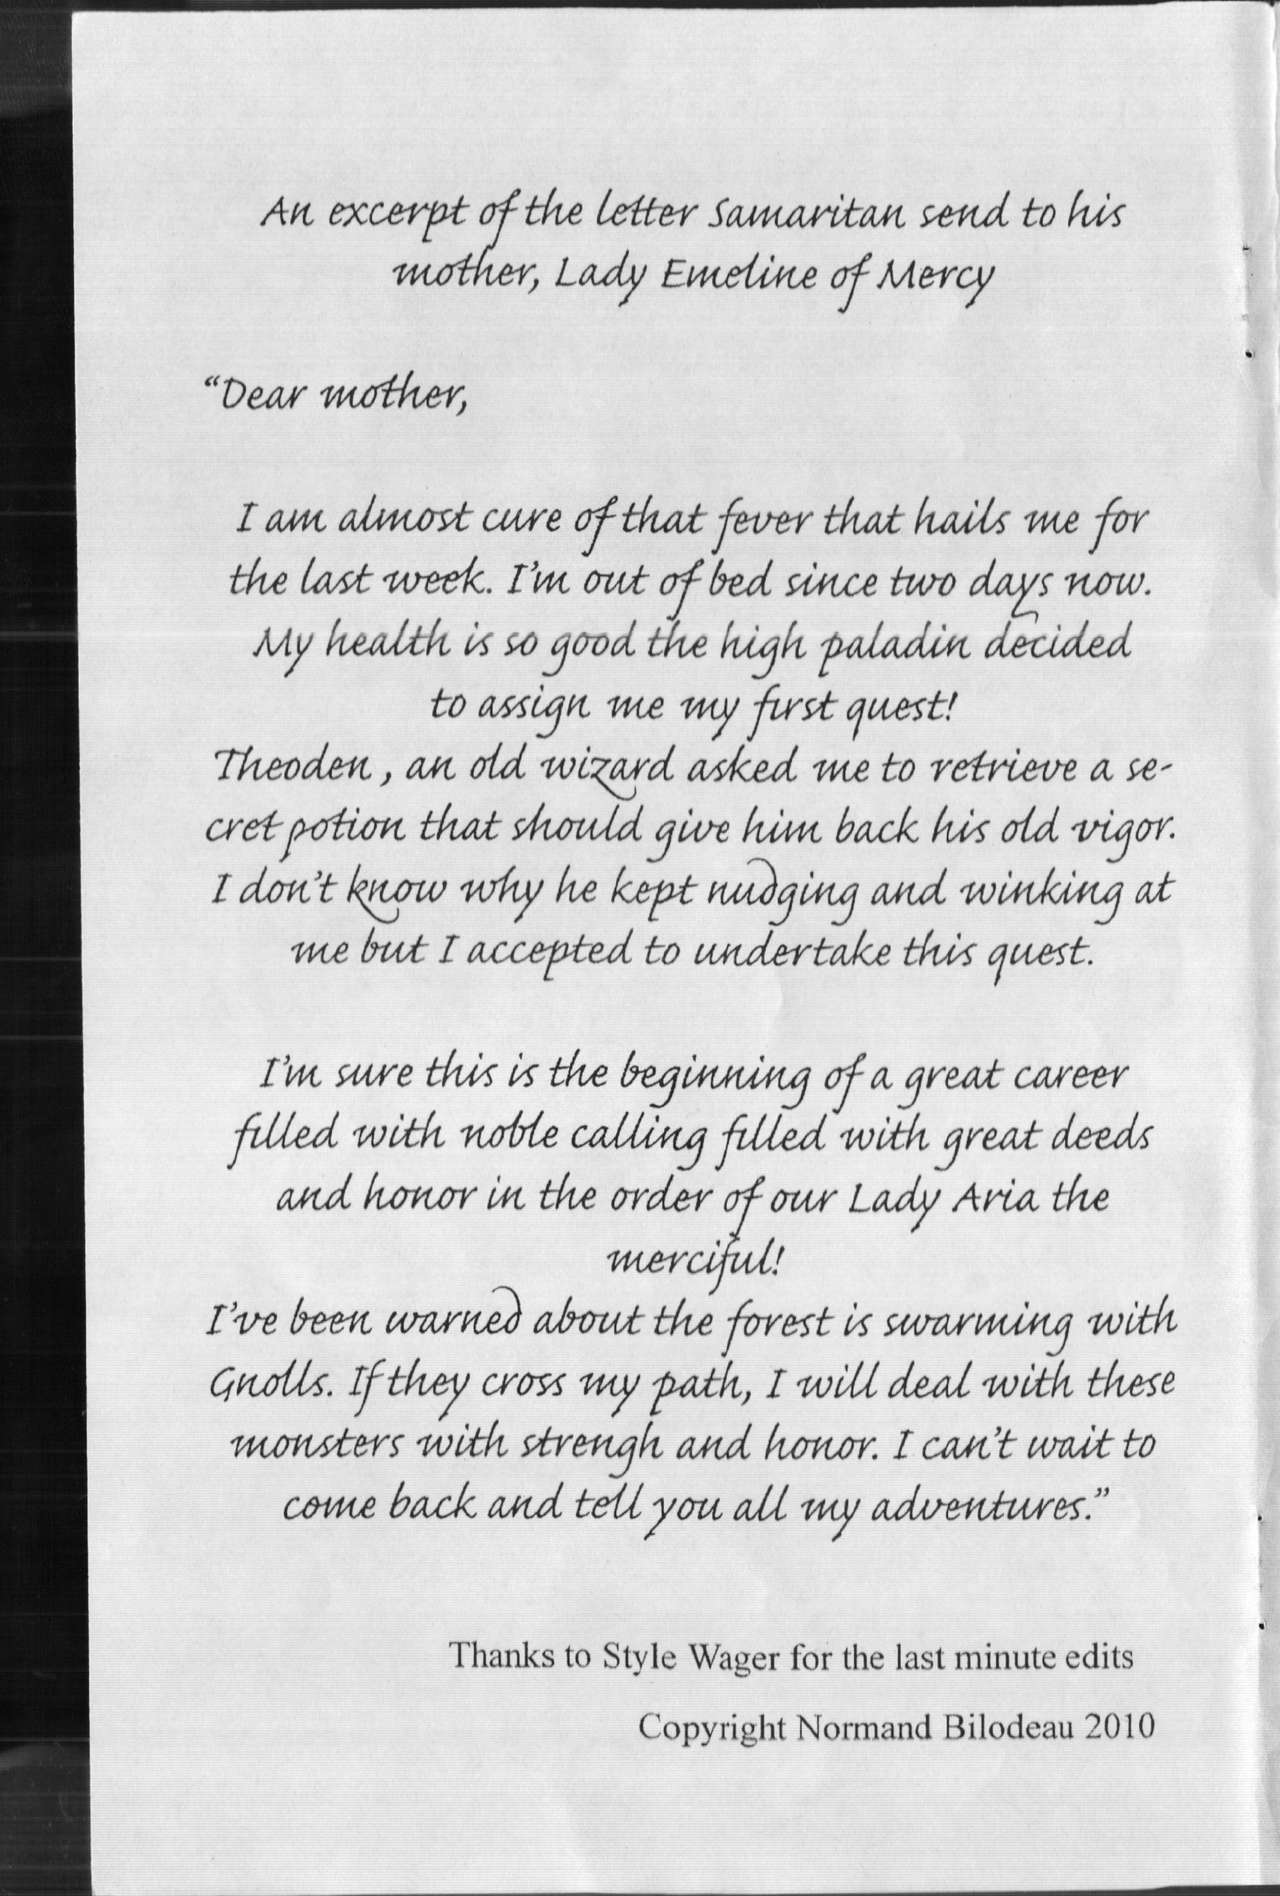 An excerpt of the letter Samaritan send to his
mother, Lady Emeline of Mercy
“Dear mother,
I am almost cure of that fever that hails me for
the last week. I’m out of bed since two days now.
My health is so good the high paladin decided
to assign me my first quest!
Theoden , an old wizard asked me to retrieve a se-
cret potion that should give him back his old vigor.
I don’t know why he kept nudging and winking at
me but I accepted to undertake this quest.
I’m sure this is the beginning of a great career
filled with noble calling filled with great deeds
and honor in the order of our Lady Aria the
merciful!
I’ve been warned about the forest is swarming with
Gnolls. If they cross my path, I will deal with these
monsters with strengh and honor. I can’t wait to
come back and tell you all my adventures.”
Thanks to Style Wager for the last minute edits
Copyright Normand Bilodeau 2010